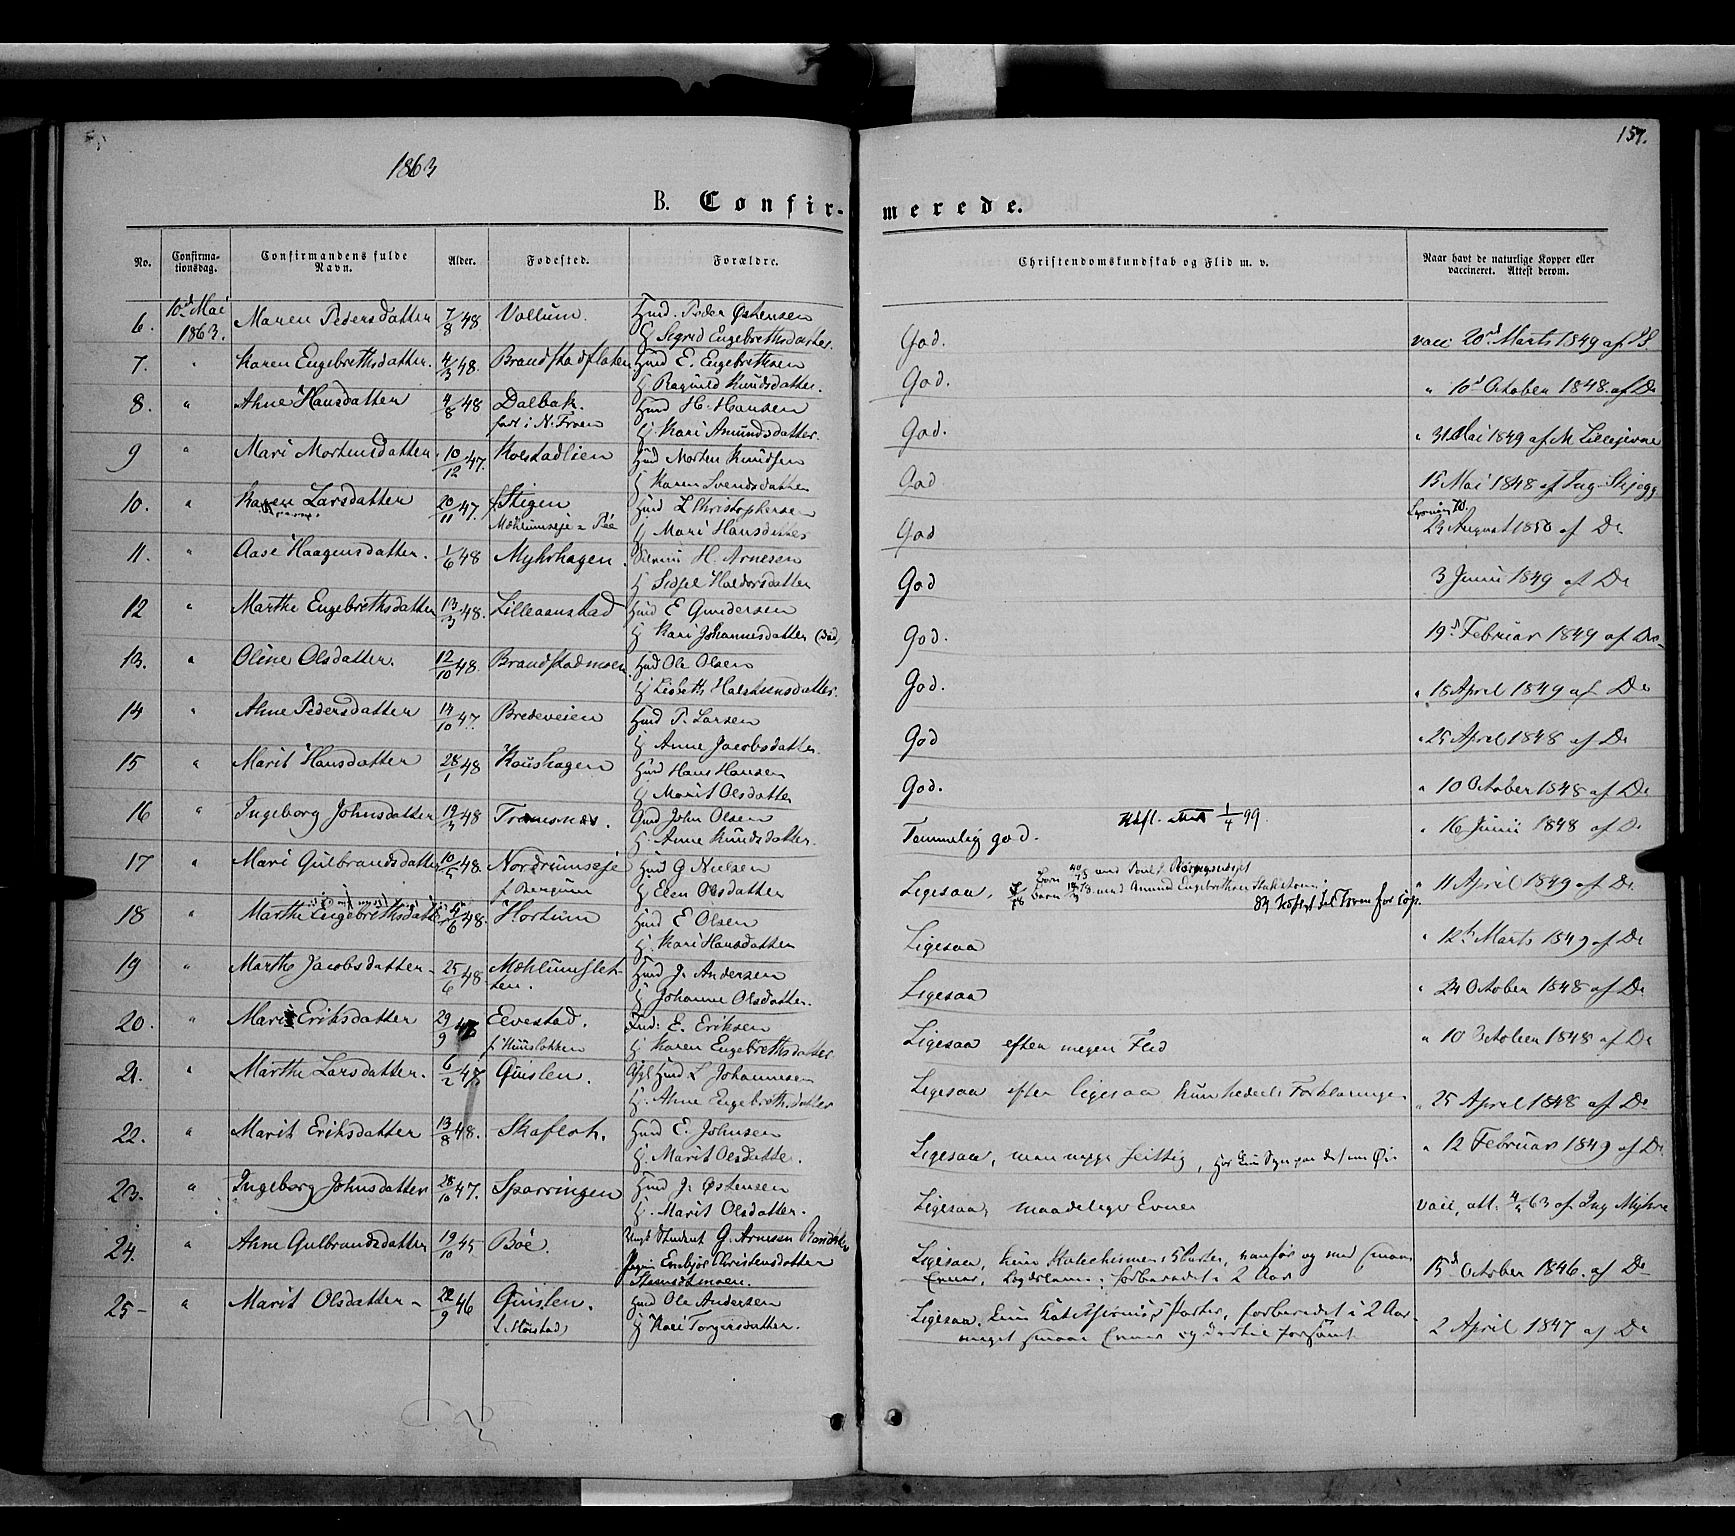 1863
157.
B. Confirmerede.
No. Confirmationsdag. Confirmandens fulde Navn. Alder. Fødested. Forældre. Christendomskundskab og Flid m. v. Naar havt de naturlige Kopper eller vaccineret. Attest derom.
6. 10d Mai 1863. Maren Pedersdatter 7/8 48 Vollum. Huusm. Peder Østensen
H Sigrid Engebrethsdatter. God. vacc 20d Marts 1849 af
7. " Karen Engebrethsdatter. 4/3 48. Brandstadfladen Huusm E. Engebrethsen
H Ragnild Knudsdatter. God. " 10d October 1848. af Do
8. " Ahne Hansdatter 4/8 48 Dalbak. Huusm H. Hansen
født i N. Fron H. Kari Amundsdatter. God. " 31 Mai 1849 af M
9 " Mari Mortensdatter. 10/12 47. Kolstadlien Huusm Morten Knudsen
H Karen Svendsdatter God 15 Mai 1848 af Ing.
10. " Karen Larsdatter 20/11 47. Stigen Huusm L Christophersen
Mæhlumseje H Mari Hansdatter God 23 August 1850 af Do
11. " Aase Haagensdatter. 1/6 48 Myhrhagen. H. Arnesen
H Sidsel Haldorsdatter God 3 Junii 1849 af Do
12 " Marthe Engebrethsdatter 13/3 48. Lilleaanstad Huusm E Gundersen
H Kari Johannesdatter God. 19d Februar 1849 af Do
13. " Oline Olsdatter. 12/10 48. Brandstadmoen Huusm Ole Olsen
H Lisbeth Halstensdatter. God. " 18 April 1849 af Do
14 " Ahne Pedersdatter 14/10 47. Bredeveien Huusm P. Larsen
H Anne Jacobsdatter. God " 25 April 1848 af Do
15 " Marit Hansdatter 28/1 48 Kaushagen Huusm Hans Hansen
H Marit Olsdatter God. " 10 October 1848 af Do
16 " Ingeborg Johnsdatter 19/3 48 Tromsnæs. Gmd John Olsen
H. Anne Knudsdatter. Temmelig god. 1/4 99. " 16 Junii 1848 af Do
17 " Mari Gulbrandsdatter 10/5 48. Nordrumseje Huusm G Nielsen
f Bergum H Elen Olsdatter Ligesaa, " 11 April 1849 af Do
18 " Marthe Engebrethsdatter /6 48. Hortum Huusm E Olsen
H. Kari Hansdatter Ligesaa " 12te Marts 1849 af Do
19 " Marthe Jacobsdatter 25/6 48. Mæhlumsletten. Huusm J. Andersen
H Johanne Olsdatter. Ligesaa " 24 October 1848 af Do
20. " Mari Eriksdatter 29/9 48 Elvestad. Ind: E. Eriksen
H Karen Engebrethsdatter Ligesaa efter megen Flid " 10 October 1848 af Do
21. " Marthe Larsdatter. 6/2 48 Quislen. Afg Huusm L Johannesen
H. Ahne Engebrethsdatter Ligesaa efter ligesaa Forklaringe " 25 April 1848 af Do
22. " Marit Eriksdatter 13/8 48. Skaflot. Huusm E. Johnsen
H. Marit Olsdatter. Ligesaa, " 12 Februar 1849 af Do
23. " Ingeborg Johnsdatter 28/10 47. Sparringen Huusm J. Østensen
H. Marit Olsdatter. Ligesaa, maadelige Evner vacc, att. 4/5 63 af Ing Myhre
24. " Ahne Gulbrandsdatter 19/10 45 Böe. Ungk Student G. Arnesen
Pigen Embjør Christensdatter
Ligesaa, kun Katechismens Parter, og med smaa
Evner, forberedet i 2 Aar 15d October 1846. af Do
25 " Marit Olsdatter 22/9 46 Quislen. Huusm Ole Andersen
H Kari Torgersdatter. Ligesaa, kun Katechismens Parter, forberedet i 2 Aar
meget smaae Evner og dertil forsømt 2 April 1847 af Do